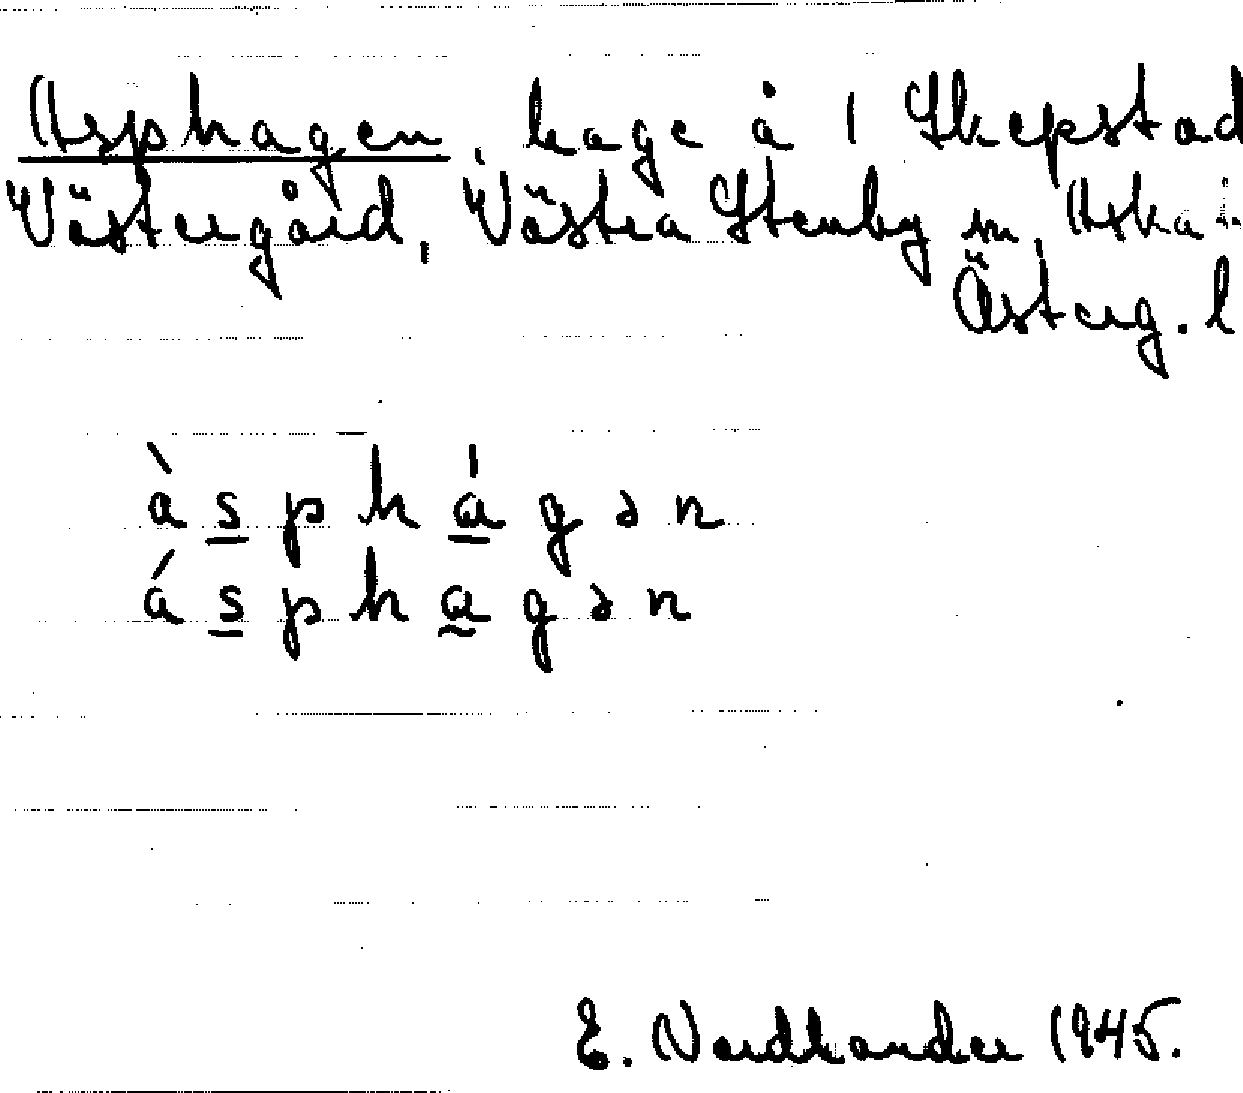 Asphagen, hage å 1 Skepstad
Västergård, Västra Stenby sn, Aska
Österg. l
àsphágən
ásphagən
E. Nordhander 1945.